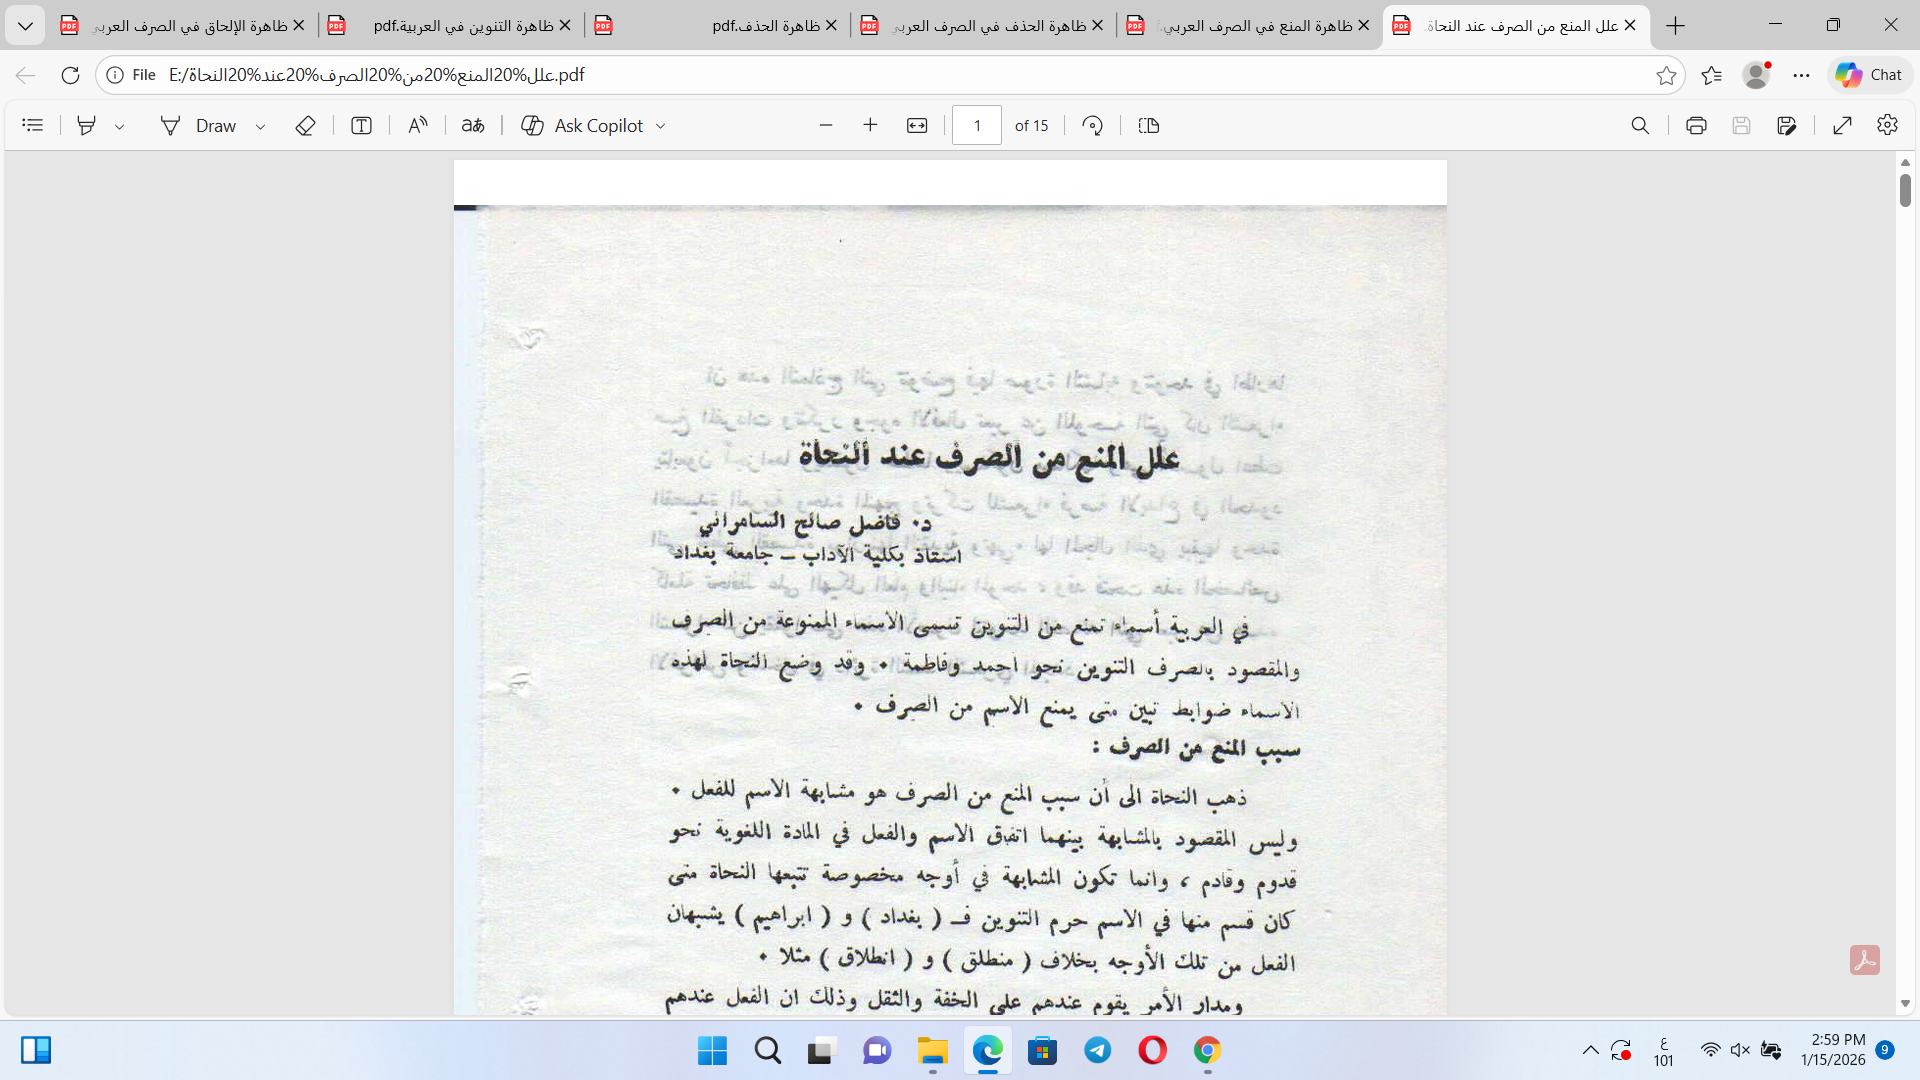 ظاهرة الإلحاق في الصرف العربي
ظاهرة التنوين في العربية.pdf
ظاهرة الحذف.pdf
ظاهرة الحذف في الصرف العربي
ظاهرة المنع في الصرف العربي.
علل المنع من الصرف عند النحاة.
File E:/علل%20المنع%20من%20الصرف%20عند%20النحاة.pdf
Chat
Draw
Ask Copilot
1 of 15
علل المنع من الصرف عند النحاة
د. فاضل صالح السامرائي
استاذ بكلية الآداب – جامعة بغداد
في العربية أسماء تمنع من التنوين تسمى الاسماء الممنوعة من الصرف
والمقصود بالصرف التنوين نحو احمد وفاطمة . وقد وضع النحاة لهذه
الاسماء ضوابط تبين متى يمنع الاسم من الصرف .
سبب المنع من الصرف :
ذهب النحاة الى أن سبب المنع من الصرف هو مشابهة الاسم للفعل .
وليس المقصود بالمشابهة بينهما اتفاق الاسم والفعل في المادة اللغوية نحو
قدوم وقادم ، وانما تكون المشابهة في أوجه مخصوصة تتبعها النحاة متى
كان قسم منها في الاسم حرم التنوين فـ ( بغداد ) و ( ابراهيم ) يشبهان
الفعل من تلك الأوجه بخلاف ( منطلق ) و ( انطلاق ) مثلا .
ومدار الأمر يقوم عندهم على الخفة والثقل وذلك ان الفعل عندهم
ع
101
2:59 PM
1/15/2026
9